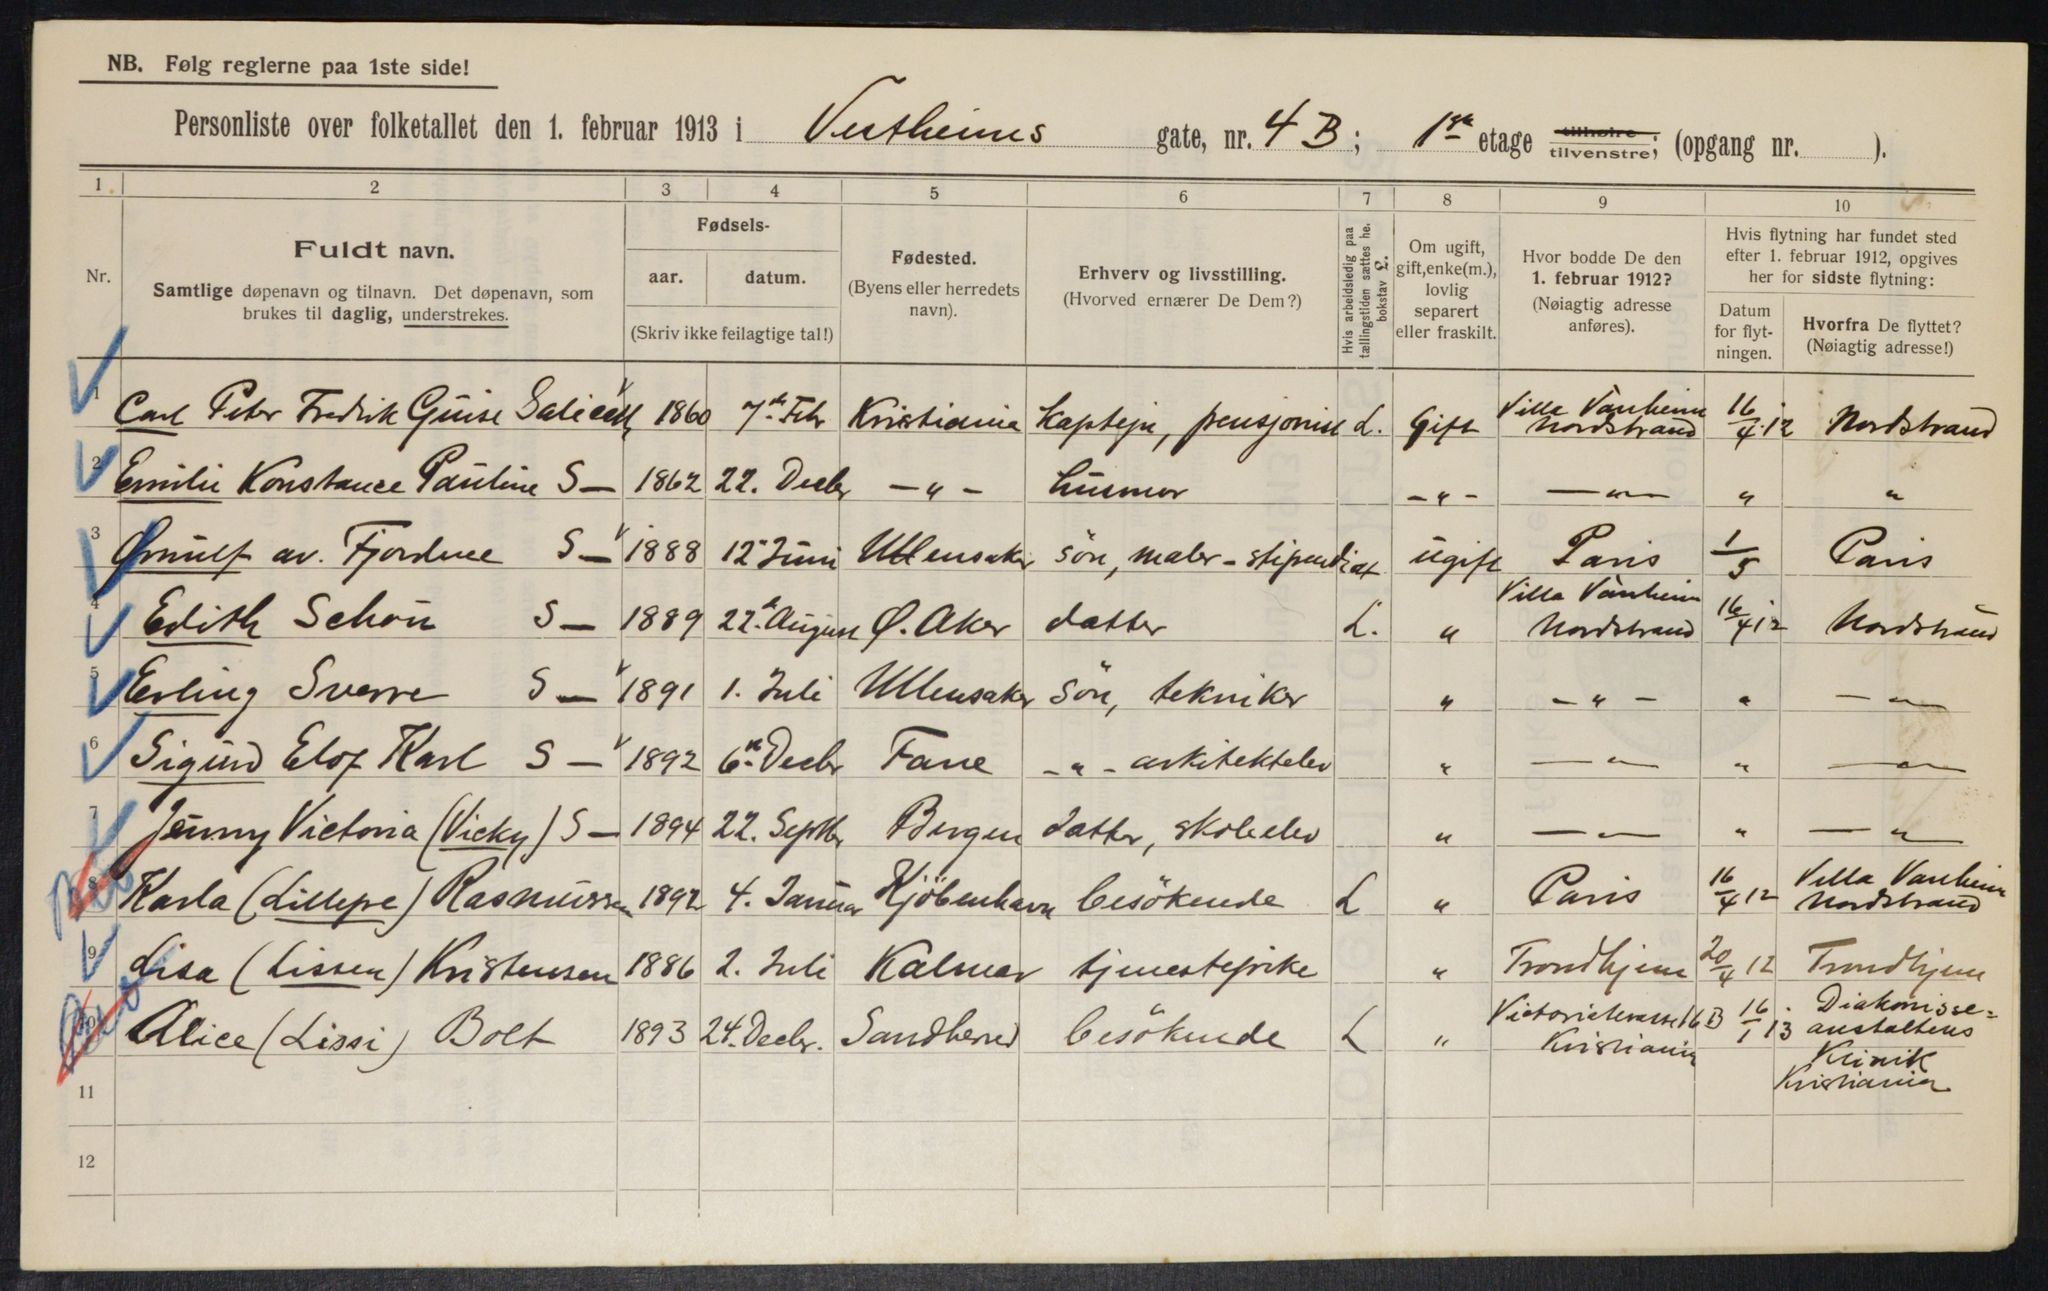 NB. Følg reglerne paa 1ste side!
Personliste over folketallet den 1. februar 1913 i Vestheims gate, nr. 4 B; 1ste etage tilhøire tilvenstre; (opgang nr. ).
1 2 3 4 5 6 7 8 9 10
Nr. Fuldt navn. Samtlige døpenavn og tilnavn. Det døpenavn, som brukes til daglig, understrekes.
Fødsels- aar. datum. (Skriv ikke feilagtige tal!)
Fødested. (Byens eller herredets navn).
Erhverv og livsstilling. (Hvorved ernærer De Dem?)
Hvis arbeidsledig paa tællingstiden sættes he. bokstav £.
Om ugift, gift, enke(m.), lovlig separert eller fraskilt.
Hvor bodde De den 1. februar 1912? (Nøiagtig adresse anføres).
Hvis flytning har fundet sted efter 1. februar 1912, opgives her for sidste flytning:
Datum for flytningen. Hvorfra De flyttet? (Nøiagtig adresse!)
1 Carl Peter Fredrik Guise 1860 7de Febr Kristiania Kaptejn, pensjonist L. Gift Villa Vanheim Nordstrand 16/4 12 Nordstrand
2 Emilie Konstance Pauline S— 1862 22. Decbr —"— husmor —"— —"— " "
3 Ørnulf av Fjordnee S— 1888 12te Juni Ullensaker sön, maler-stipendiat ugift Paris 1/5 Paris
4 Edith Schøn S— 1889 22. August Ø. Aker datter L. " Villa Vanheim Nordstrand 16/4 12 Nordstrand
5 Erling Sverre S— 1891 1. Juli Ullensaker sön, tekniker " —"— " —"—
6 Sigurd Elof Karl S— 1892 6te Decbr Fane —"— arkitektelev " —"— " —"—
7 Jenny Victoria (Vicky) S— 1894 22. Septbr Bergen datter, skoleelev " —"— " —"—
8 Karla (Lillepe) Rasmussen 1892 4. Januar Kjöbenhavn besökende L " Paris 16/4 12 Villa Vanheim Nordstrand
9 Lisa (Lissen) Kristensen 1886 2. Juli Kalmar tjenestepike " Trondhjem 20/4 12 Trondhjem
10 Alice (Lissi) Bolt 1893 24. Decbr. Sandherred besökende L " Victoriaterasse 16 B Kristiania 16/1 13 Diakonisse-anstaltens Klinik Kristiania
11
12